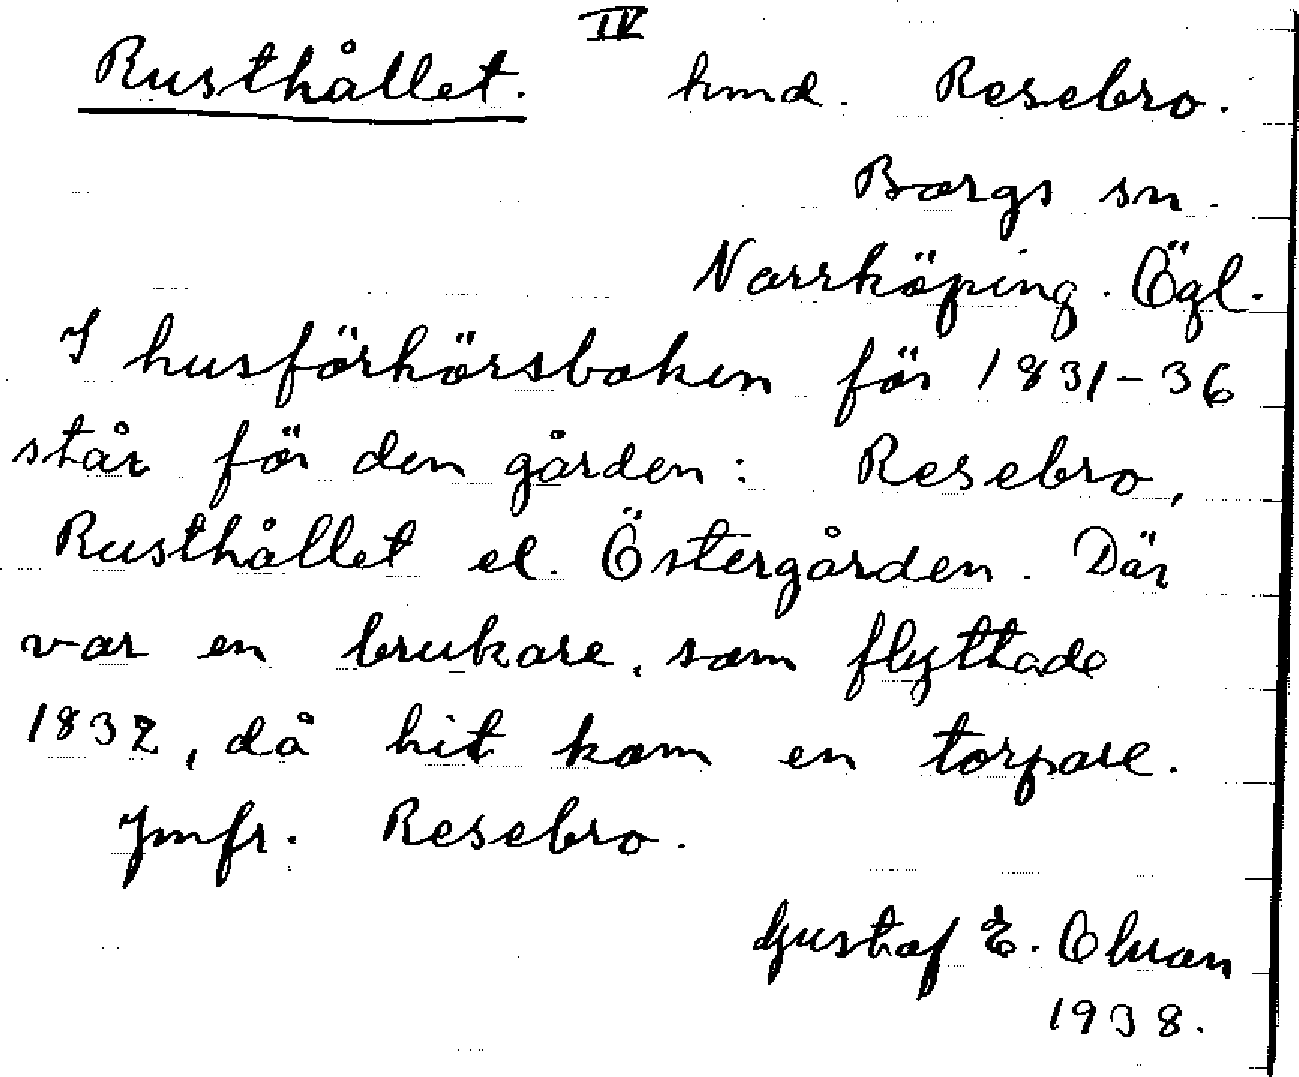 IV
Rusthållet. hmd. Resebro.
Borgs sn.
Norrköping. Ögl.
I husförhörsboken för 1831-36
står för den gården: Resebro,
Rusthållet el. Östergården. Där
var en brukare, som flyttade
1832, då hit kom en torpare.
Jmfr. Resebro.
Gustaf E. Olsson
1938.